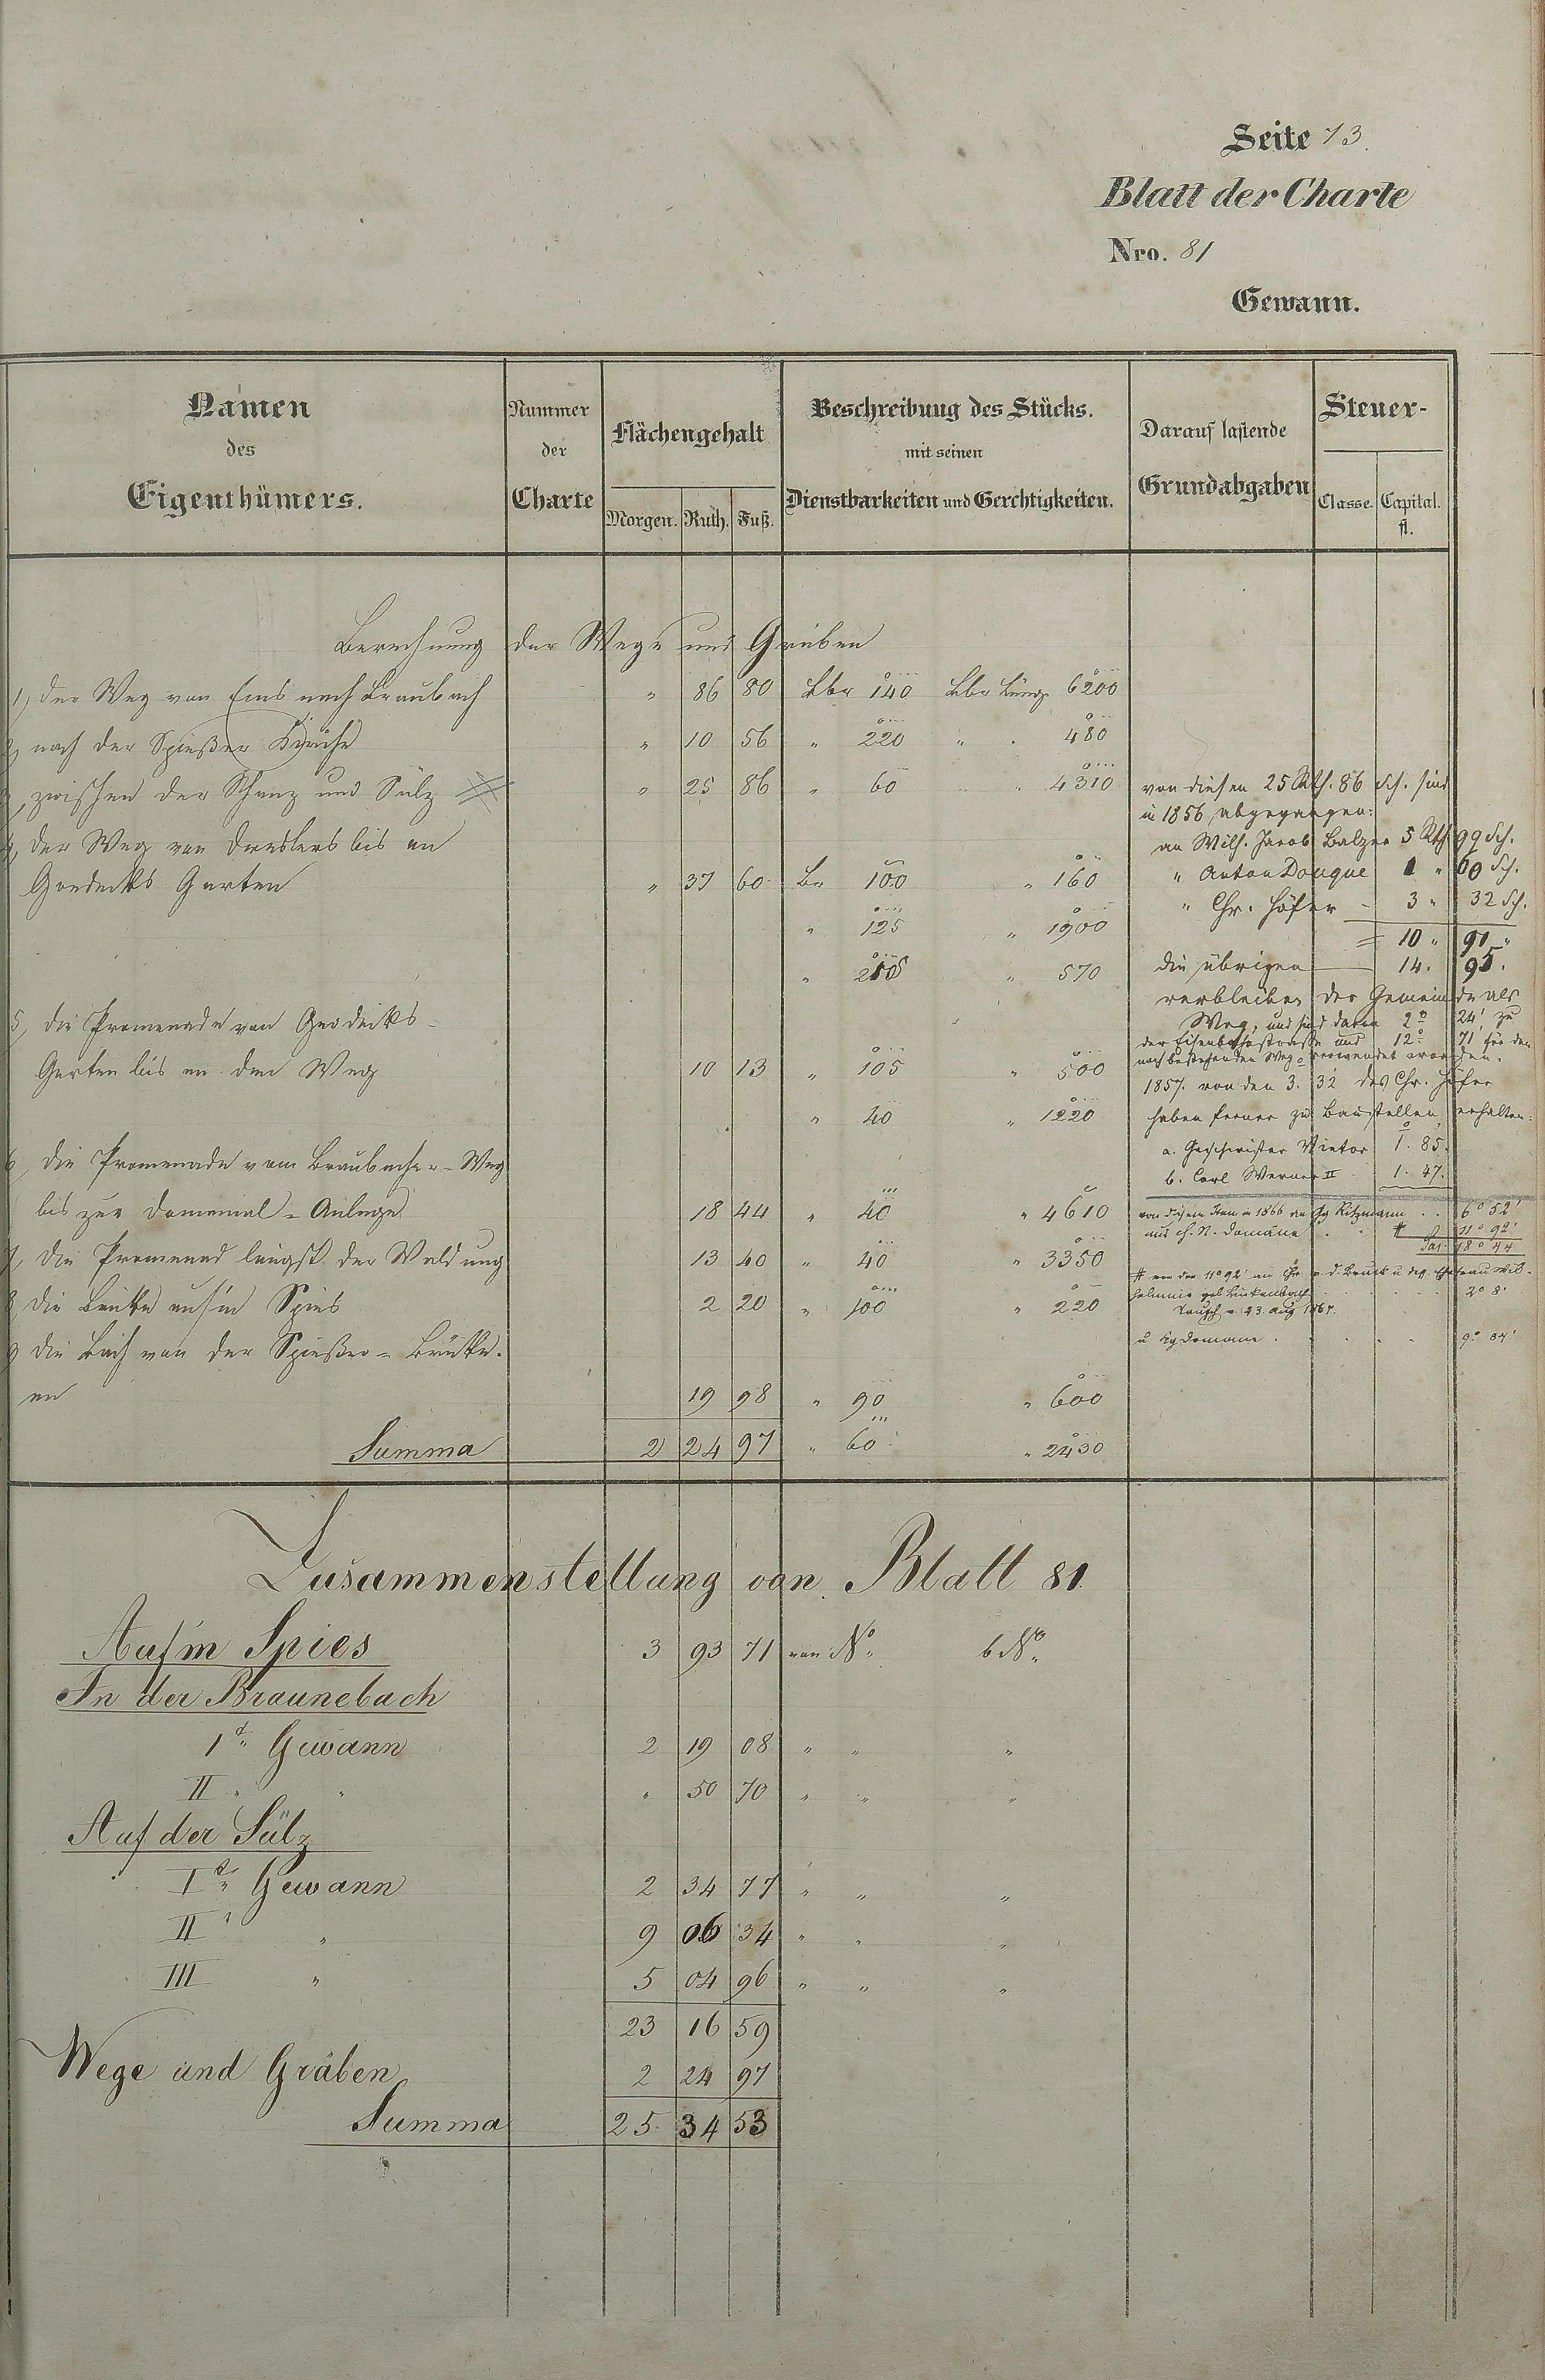 Seite 73.
Blatt der Charte
Nro. 81
Gewann.
Namen des Eigenthümers.
Nummer der Charte
Flächengehalt
Morgen. Ruth. Fuß.
Beschreibung des Stücks. mit seinen Dienstbarkeiten und Gerechtigkeiten.
Darauf lastende Grundabgaben
Steuer-
Classe. Capital. fl.
Berechnung der Wege und Gräben
1, der Weg von Ems nach Braubach " 86 80 Lbr 140 Lbr Länge 6200
2, nach der Spießer " 10 56 " 220 " 480
3, zwischen der Schanz und Sülz " 25 86 " 60 " 4310
4, der Weg von bis an
Goedecks Garten " 37 60 Br 100 " 160
" 125 " 1900
" " 570
5, die Promenade von Goedecks-
Garten bis an den Weg 10 13 " 105 " 500
" 40 " 1220
6, die Promenade vom Braubacher-Weg
bis zur Domanial-Anlage 18 44 " 40 " 4610
7, die Promenad längst der Waldung 13 40 " 40 " 3350
8, die auf'm Spies 2 20 " 100 " 220
9 die Bach von der Spießer-Brücke.
an 19 98 " 90 " 600
Summa 2 24 97 " 60 " 2430
von diesen 25 Rth. 86 Sch. sind
in 1856 abgegangen:
an Wilh. Jacob Balzer 5 Rth 99 Sch.
" Anton Douque 1 " 60 Sch.
" Chr. Höfer - 3 " 32 Sch.
= 10 " 91 "
die übrigen 14. 95.
verbleiben der Gemeinde als
Weg, und sind davon 2° 24' zu
der Eisenbahnstraße und 12° 71' für den
noch bestehenden Weg verwendet worden.
1857. von den 3. 32 des Chr. Höfer
haben ferner zu Baustellen erhalten:
a. Geschwister Vietor 1. 85.
b. Carl Werner II 1. 47.
von diesem in 1866 an Ritzmann 6° 52'
und h. N. Domäne # 11° 92'
18° 44
# von den 11° 92' an
2° 8'
Tausch v. 23. Aug
u Kgdomäne 9° 84'
Zusammenstellung von Blatt 81.
Auf'm Spies 3 93 71 von No. b No.
In der Braunebach
1te Gewann 2 19 08 " " "
II " " " 50 70 " " "
Auf der Sülz
Ite Gewann 2 34 77 " " "
II " " 9 06 34 " " "
III " 5 04 96 " " "
23 16 59
Wege und Gräben 2 24 97
Summa 25. 34 53